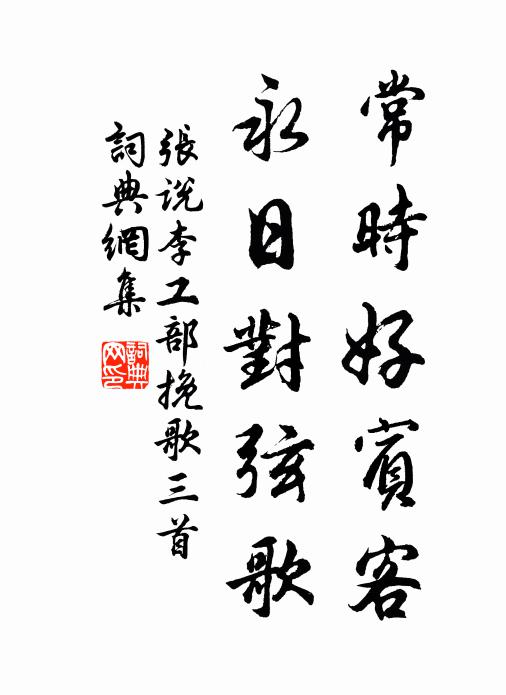 常時好賓客
永日對弦歌
張说李工部挽歌三首
詞典網集
詞典网印